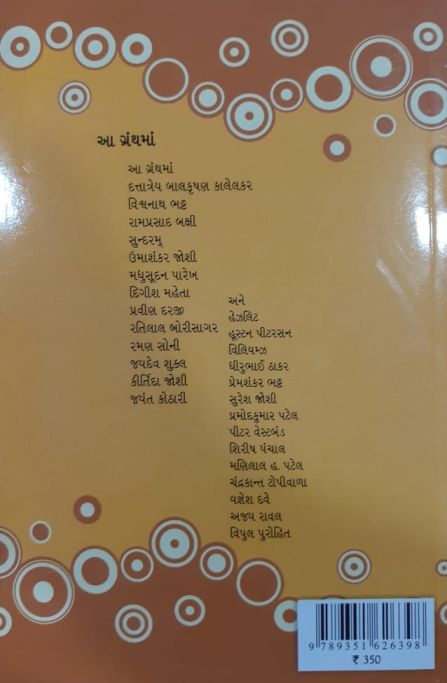 આ ગ્રંથમાં
આ ગ્રંથમાં
દત્તાત્રેય બાલકૃષ્ણ કાલેલકર
વિશ્વનાથ ભટ્ટ
રામપ્રસાદ બક્ષી
સુન્દરમ્
ઉમાશંકર જોશી
મધુસૂદન પારેખ
દિગીશ મહેતા
પ્રવીણ દરજી
રતિલાલ બોરીસાગર
રમણ સોની
જયદેવ શુક્લ
કીર્તિદા જોશી
જયંત કોઠારી
અને
હેઝલિટ
હૂસ્ટન પીટરસન
વિલિયમ્ઝ
ધીરુભાઈ ઠાકર
પ્રેમશંકર ભટ્ટ
સુરેશ જોશી
પ્રમોદકુમાર પટેલ
પીટર વેસ્ટબંડ
શિરીષ પંચાલ
મણિલાલ હ. પટેલ
ચંદ્રકાન્ત ટોપીવાળા
યજ્ઞેશ દવે
અજય રાવલ
વિપુલ પુરોહિત
9 789351 626398
₹ 350